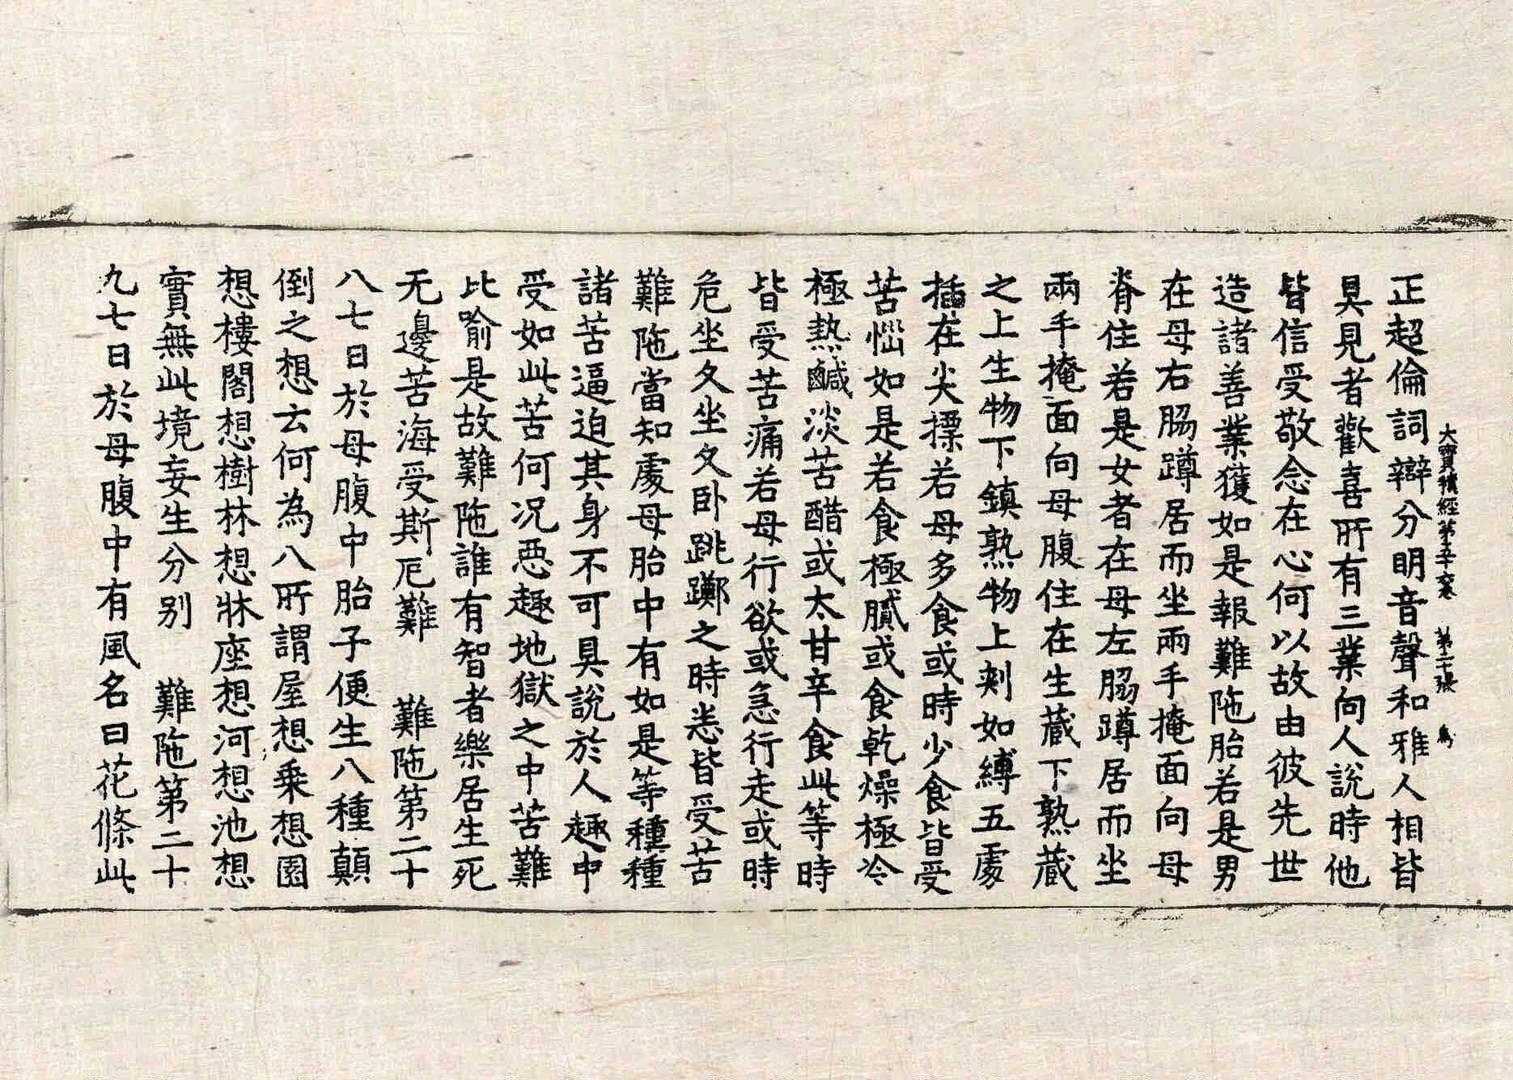 正超倫詞辯分明音聲和雅人相皆
大寶積經第五十六卷 第二十張 為
具見者歡喜所有三業向人說時他
皆信受敬念在心何以故由彼先世
造諸善業獲如是報難陁胎若是男
在母右脇蹲居而坐兩手掩面向母
脊住若是女者在母左脇蹲居而坐
兩手掩面向母腹住在生蔵下熟蔵
之上生物下鎮熟物上刾如縛五處
插在尖摽若母多食或時少食皆受
苦惱如是若食極膩或食乾燥極冷
極熱鹹淡苦醋或太甘辛食此等時
皆受苦痛若母行欲或急行走或時
危坐久坐久卧跳躑之時悉皆受苦
難陁當知處母胎中有如是等種種
諸苦逼迫其身不可具說於人趣中
受如此苦何况惡趣地獄之中苦難
比喻是故難陁誰有智者樂居生死
无邊苦海受斯厄難 難陁第二十
八七日於母腹中胎子便生八種顛
倒之想云何為八所謂屋想乘想園
想樓閣想樹林想牀座想河想池想
實無此境妄生分别 難陁第二十
九七日於母腹中有風名曰花條此